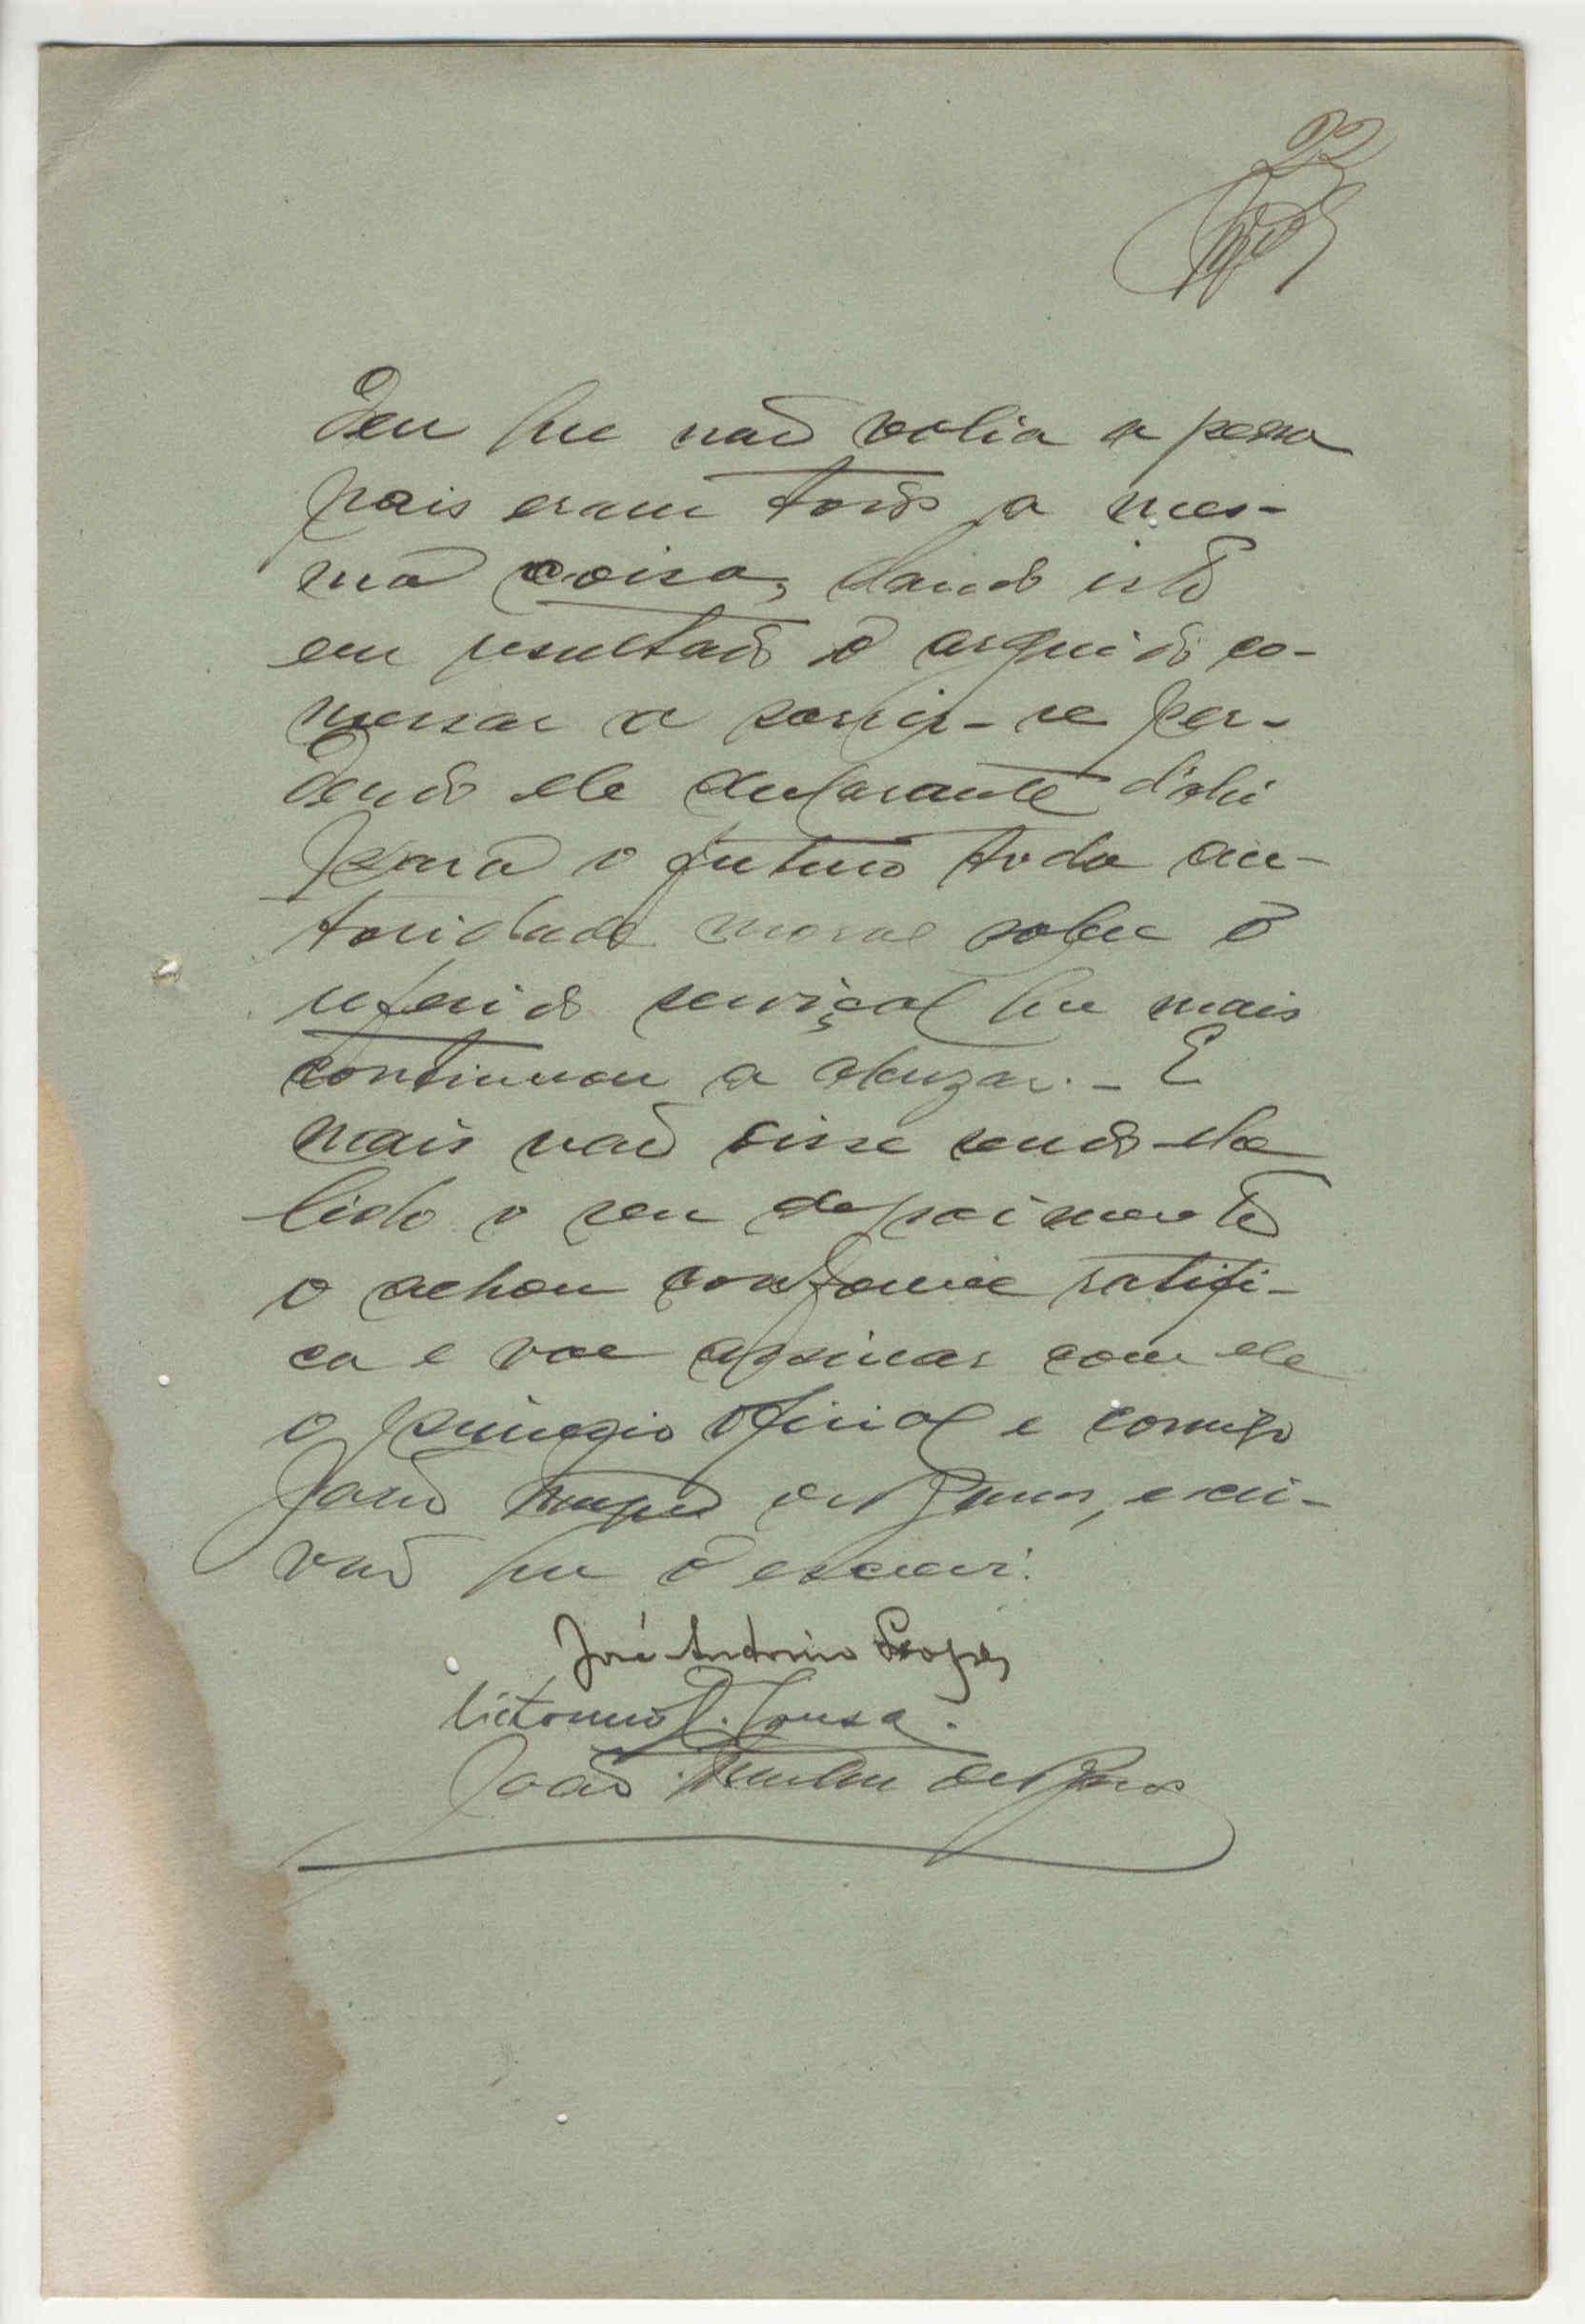 22
deu que não valia a pena
pois eram todos a mes-
ma coisa, dando isto
em resultado o arguido co-
messar a sorrir-se per-
dendo ele declarante d'ahi
para o futuro toda au-
toridade moral sobre o
referido serviçal que mais
continuou a abuzar. - E
mais não disse sendo-lhe
lido o seu depoimento
o achou conforme ratifi-
ca e vae assinar com ele
o proprio oficial e comigo
João de escri-
vão que o escrevi.
José Antonio Lopes
Victorino Sousa.
João